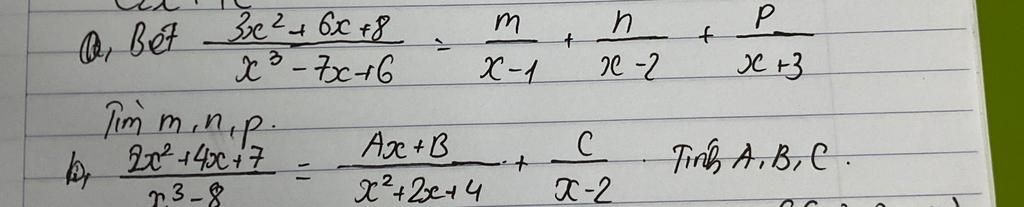 a, Bết (3x² + 6x + 8)/(x³ - 7x + 6) = m/(x - 1) + n/(x - 2) + p/(x + 3)
Tìm m, n, p.
b, (2x² + 4x + 7)/(x³ - 8) = (Ax + B)/(x² + 2x + 4) + C/(x - 2) . Tính A, B, C.